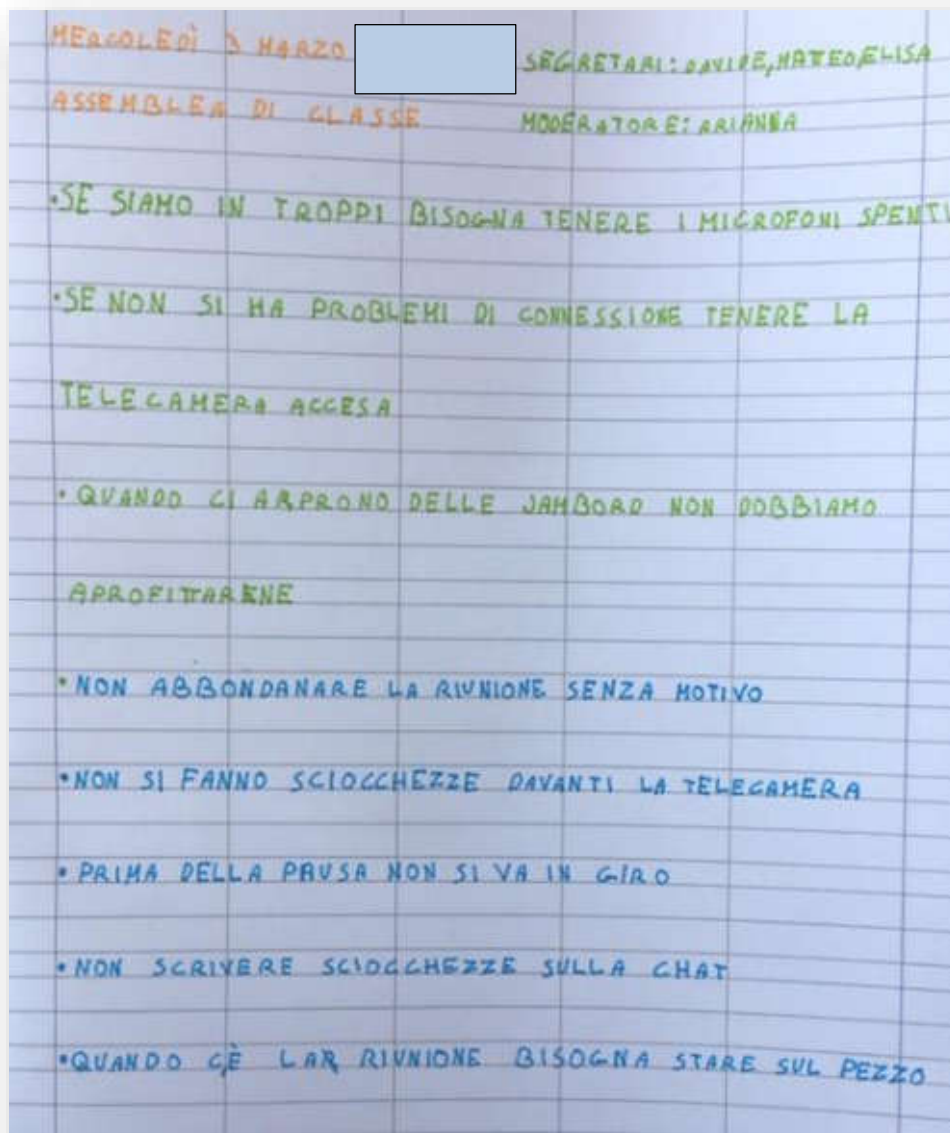 MERCOLEDÌ 3 MARZO SEGRETARI: DAVIDE, MATTEO, ELISA
ASSEMBLEA DI CLASSE MODERATORE: ARIANNA
•SE SIAMO IN TROPPI BISOGNA TENERE I MICROFONI SPENTI
•SE NON SI HA PROBLEMI DI CONNESSIONE TENERE LA
TELECAMERA ACCESA
•QUANDO CI ARPRONO DELLE JAMBORD NON DOBBIAMO
APROFITTARENE
•NON ABBONDANARE LA RIUNIONE SENZA MOTIVO
•NON SI FANNO SCIOCCHEZZE DAVANTI LA TELECAMERA
•PRIMA DELLA PAUSA NON SI VA IN GIRO
•NON SCRIVERE SCIOCCHEZZE SULLA CHAT
•QUANDO C'È LAR RIUNIONE BISOGNA STARE SUL PEZZO